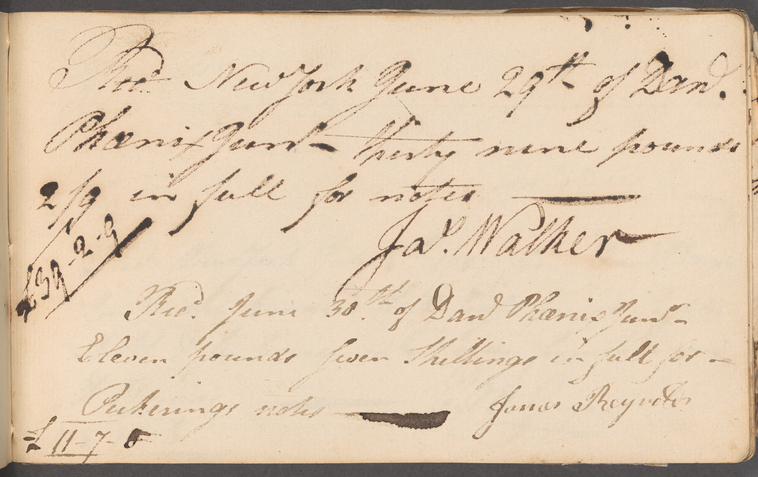 Recd New York June 29th of Danl.
Phœnix Junr thirty nine pounds
2/9 in full for notes
£39-2-9
Jas. Walker
Recd. June 30th. of Danl Phœnix Junr
Eleven pounds seven Shillings in full for
Pickerings notes
James Reynolds
£ 11-7-0